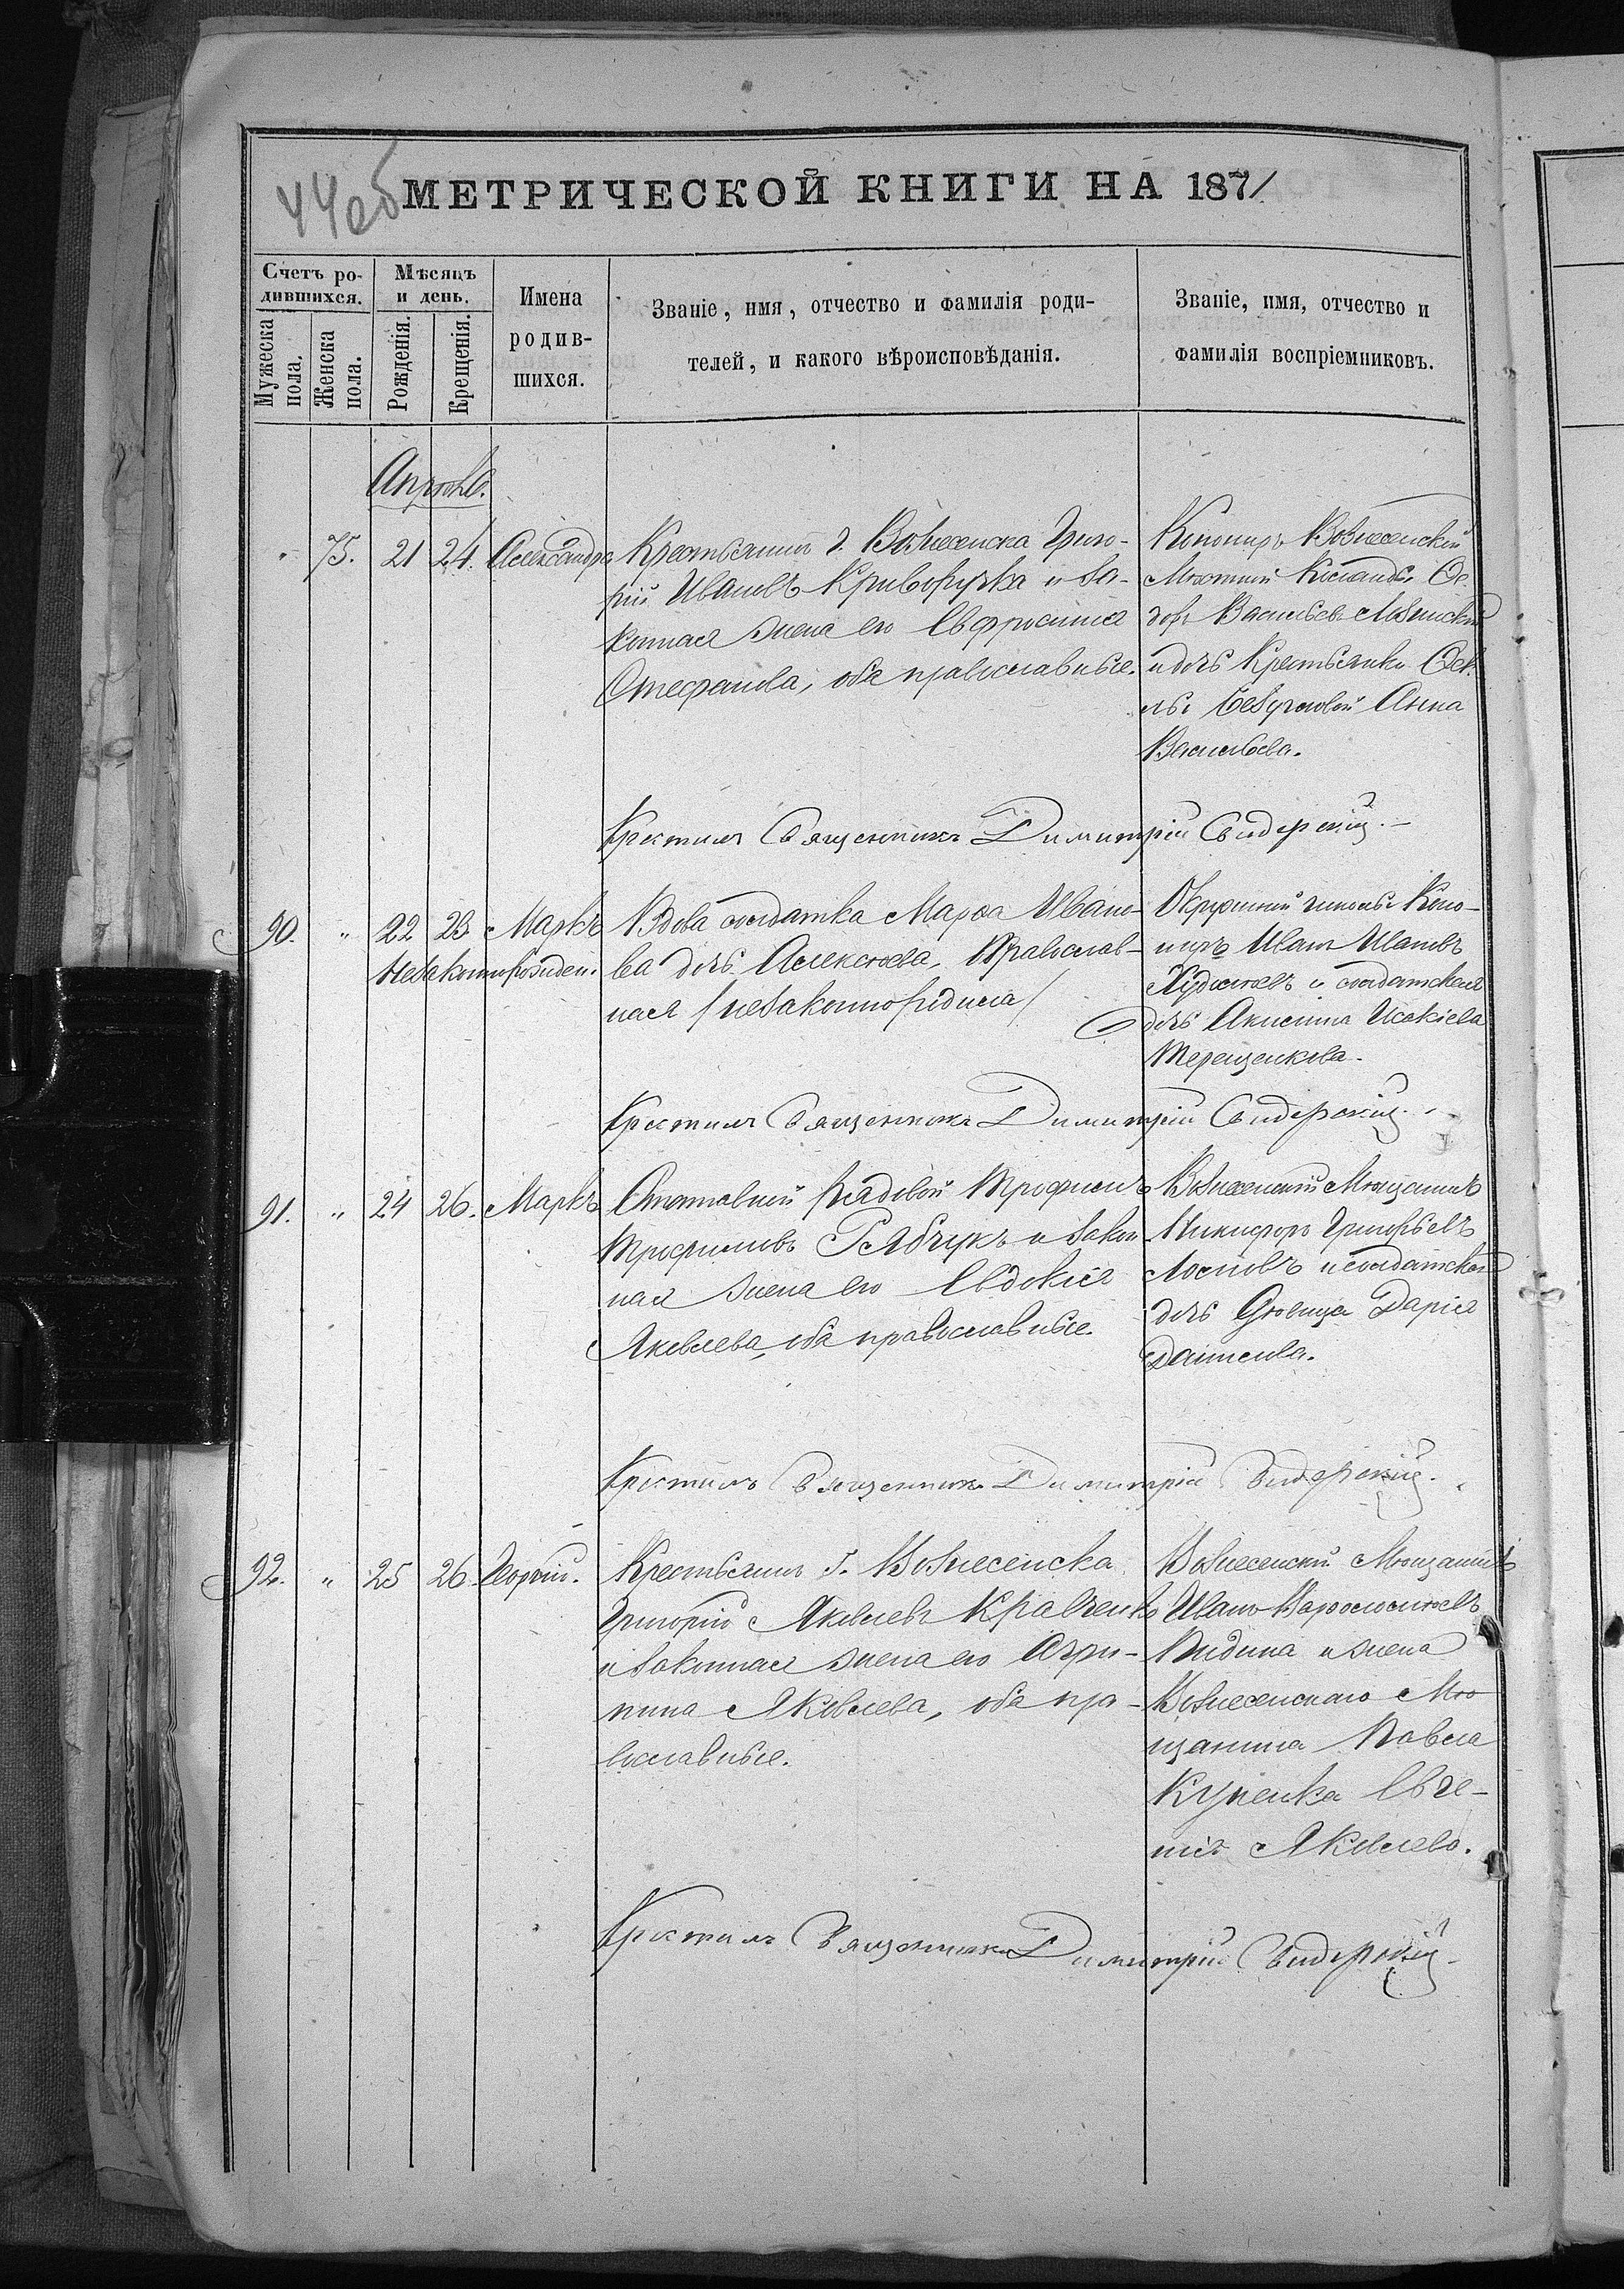 44об
МЕТРИЧЕСКОЙ КНИГИ НА 1871
Счетъ ро-
дившихся.
Мужеска
пола.
Женска
пола.
Мѣсяцъ
и день.
Рожденія.
Крещенія.
Имена
родив-
шихся.
Званіе, имя, отчество и фамилія роди-
телей, и какого вѣроисповѣданія.
Званіе, имя, отчество и
фамилія воспріемниковъ.
Апрѣль.
75. 21 24. Александра
Крестьянинъ г. Вознесенска Григо-
рій Ивановъ Криворучка и за-
конная жена его Евфросинія
Стефанова, оба православные.
Вознесенской
Мѣстной Команды
Васильевъ
и дочь Крестьянки
Анна
Васильева.
Крестилъ Священникъ Димитрій Свидерскій.
90. " 22 23 Маркъ
Незаконнорожден.
Вдова солдатка Марѳа Ивано-
ва дочь Алексѣева, Православ-
ная /незаконнородила/
Иванъ Ивановъ
и солдатская
дочь Акилина Исакіева
Терещенкова.
Крестилъ Священникъ Димитрій Свидерскій.
91. " 24 26. Маркъ
Отставной Рядовой Трофимъ
Трофимовъ Рябчукъ и закон-
ная жена его Евдокія
Яковлева, оба православные.
Вознесенскій Мѣщанинъ
Никифоръ Григорьевъ
и солдатская
дочь Дѣвица Дарія
Данилова.
Крестилъ Священникъ Димитрій Свидерскій.
92. " 25 26. Георгій.
Крестьянинъ г. Вознесенска
Григорій Яковлевъ Кравченко
и законная жена его Агри-
пина Яковлева, оба пра-
вославные.
Вознесенскій Мѣщанинъ
Иванъ Варѳоломѣевъ
и жена
Вознесенскаго Мѣ-
щанина Павла
Купенка Евге-
нія Яковлева.
Крестилъ Священникъ Димитрій Свидерскій